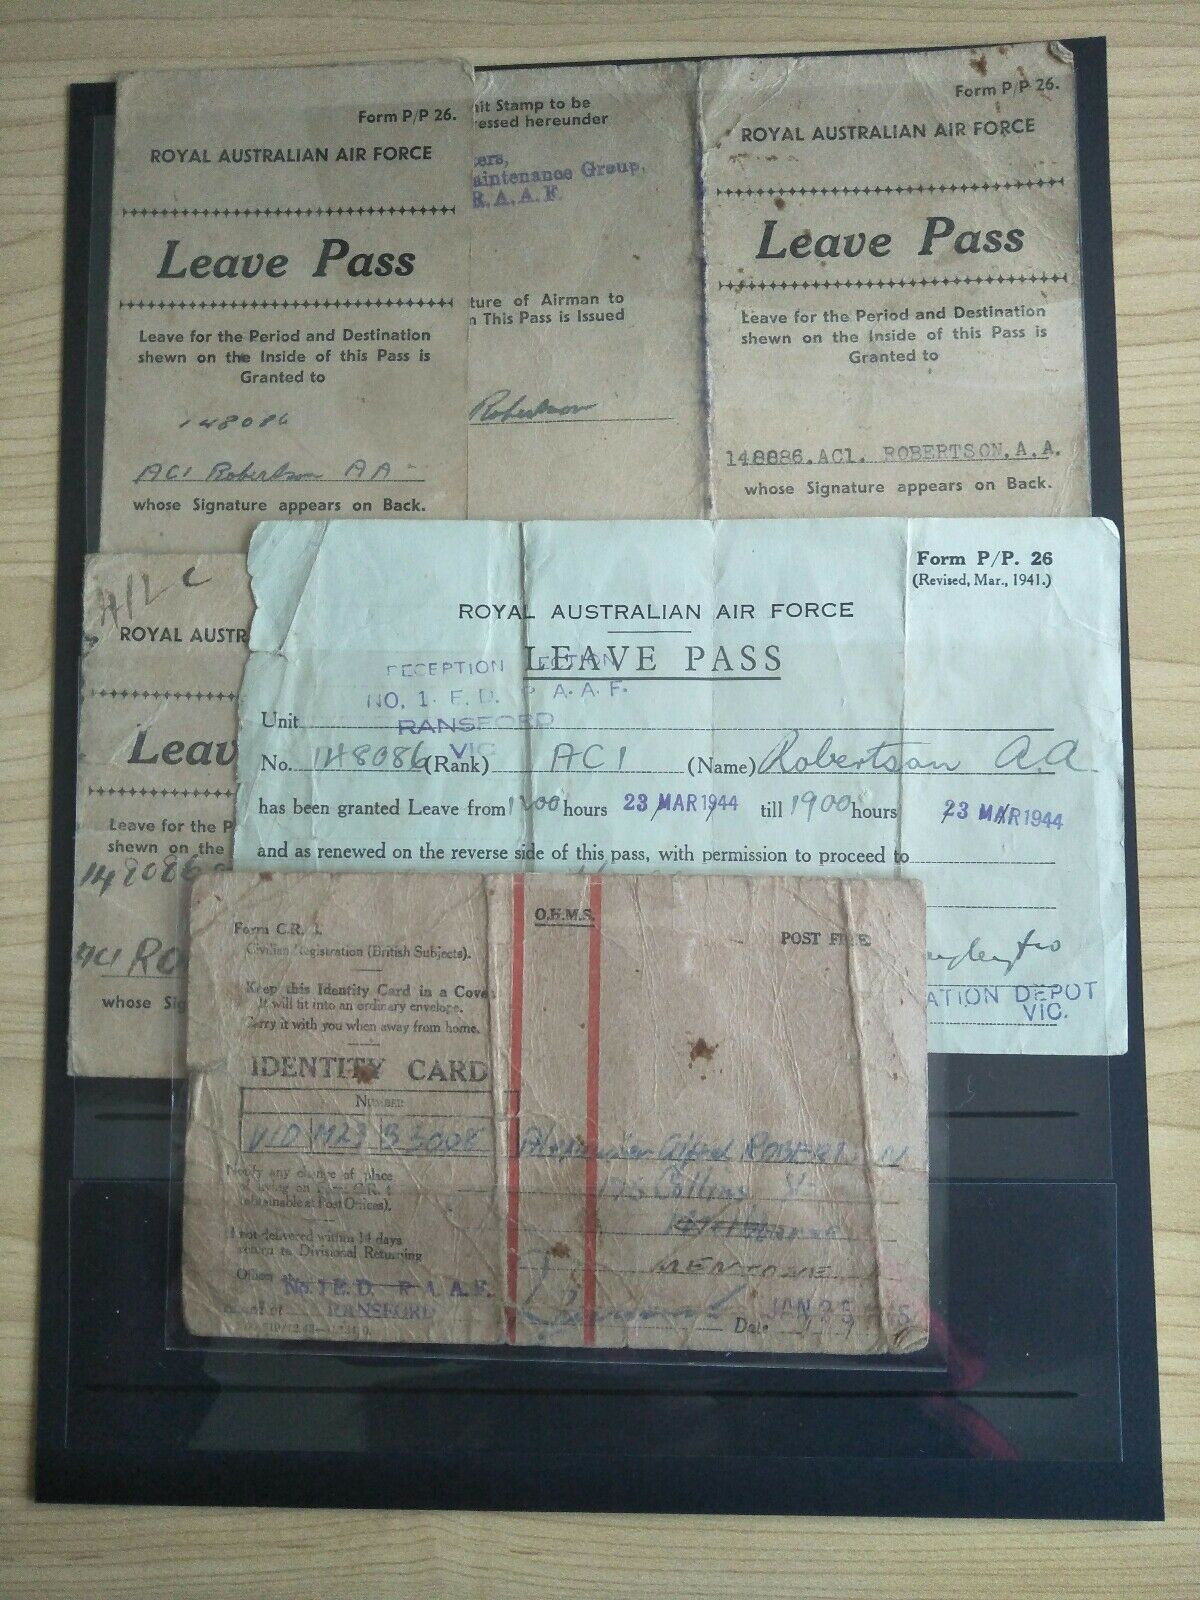 Form P/P 26.
ROYAL AUSTRALIAN AIR FORCE
Leave Pass
Leave for the Period and Destination
shewn on the Inside of this Pass is
Granted to
148086
AC1 Robertson AA
whose Signature appears on Back.
nit Stamp to be
ressed hereunder
ters,
aintenance Group,
R.A.A.F.
ture of Airman to
n This Pass is Issued
Robertson
Form P/P 26.
ROYAL AUSTRALIAN AIR FORCE
Leave Pass
Leave for the Period and Destination
shewn on the Inside of this Pass is
Granted to
148886.AC1. ROBERTSON.A.A.
whose Signature appears on Back.
ROYAL AUSTR
Leav
Leave for the P
shewn on the
148086
AC1 Ro
whose Sig
Form P/P. 26
(Revised, Mar., 1941.)
ROYAL AUSTRALIAN AIR FORCE
LEAVE PASS
RECEPTION SECTION
NO. 1. E.D. R.A.A.F.
Unit RANSFORD
VIC
No. 148086 (Rank) AC1 (Name) Robertson A.A
has been granted Leave from hours 23 MAR 1944 till 1900 hours 23 MAR 1944
and as renewed on the reverse side of this pass, with permission to proceed to
ATION DEPOT
VIC.
O.H.M.S.
POST FREE
Form C.R. 
Civilian Registration (British Subjects).
Keep this Identity Card in a Cove
It will fit into an ordinary envelope.
Carry it with you when away from home.
IDENTITY CARD
NUMBER
V10 M23
Alexander Alfred ROBERT N
Notify any change of place
of living on Form C.R.
(obtainable at Post Offices).
Collins St
Melbourne
If not delivered within 14 days
return to Divisional Returning
MENTONE
Officer
No. 1 E.D. R.A.A.F.
RANSFORD
JAN 25
Date